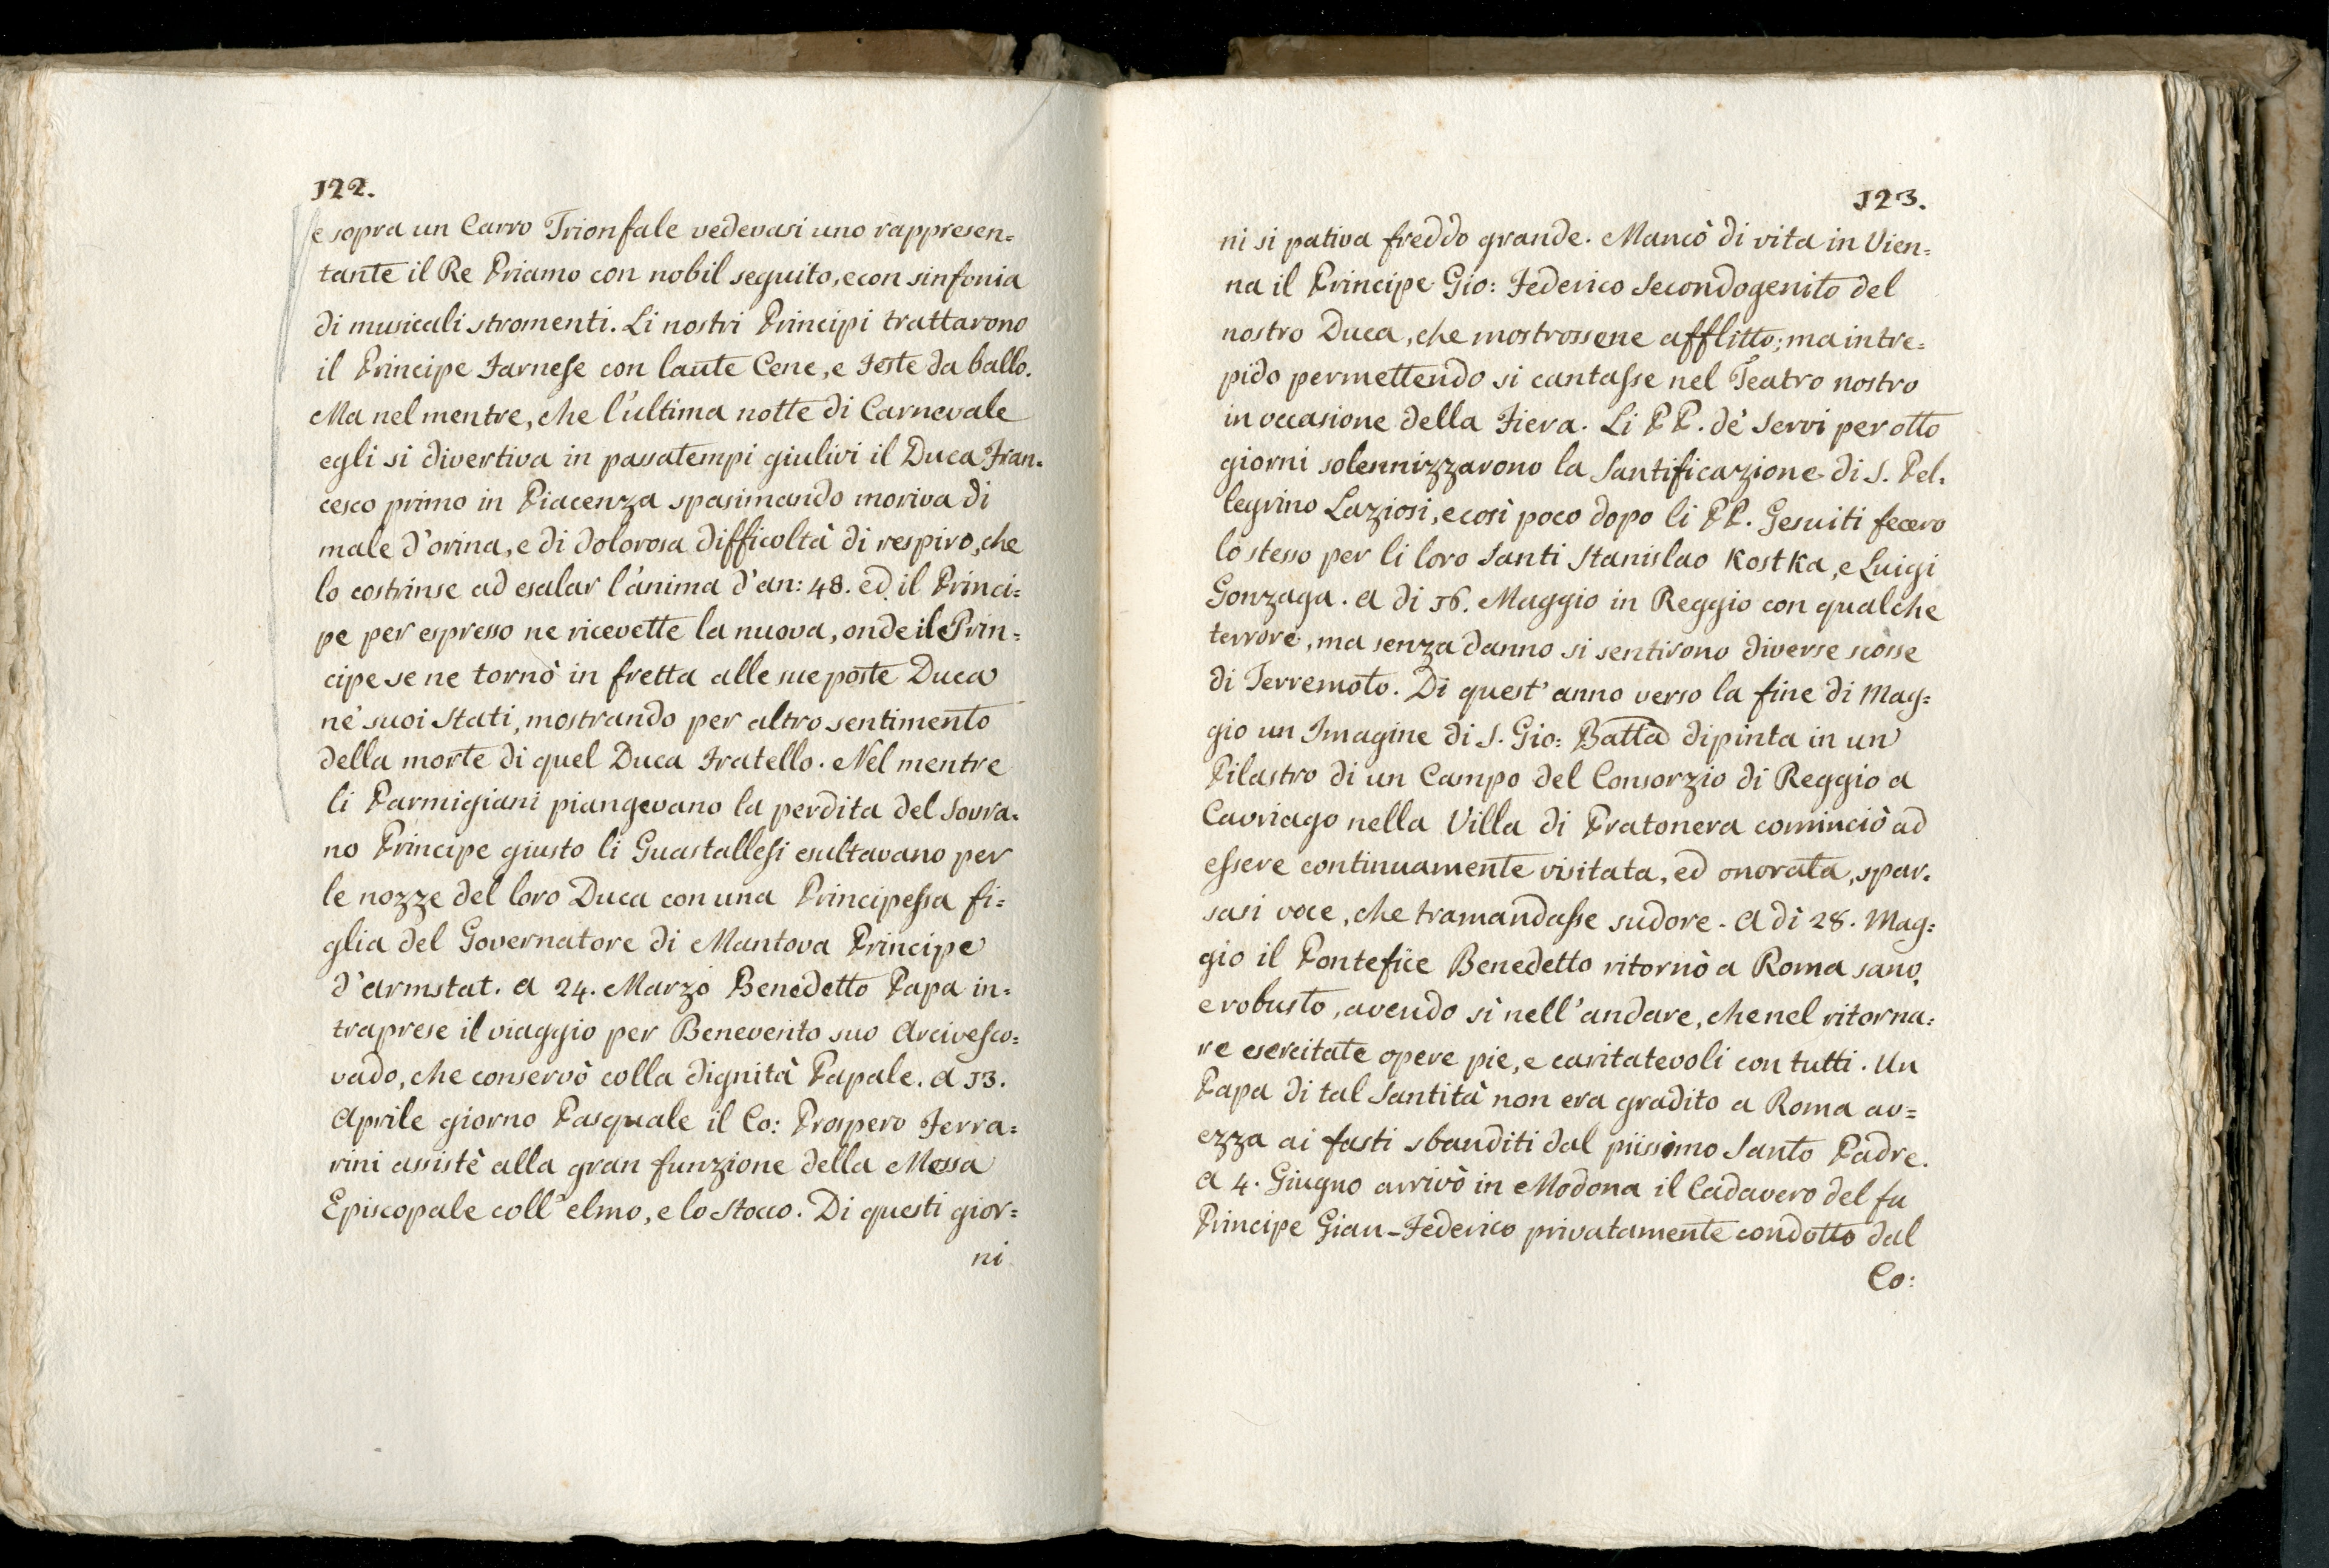 122.
e sopra un Carro Trionfale vedevasi uno rappresen=
tante il Re Priamo con nobil seguito, e con sinfonia
di musicali stromenti. Li nostri Principi trattarono
il Principe Farnese con laute Cene, e Feste da ballo.
Ma nel mentre, che l'ultima notte di Carnevale
egli si divertiva in passatempi giulivi il Duca Fran=
cesco primo in Piacenza spasimando moriva di
male d'orina, e di dolorosa difficoltà di respiro, che
lo costrinse ad esalar l'anima d'an: 48. ed il Princi=
pe per espresso ne ricevette la nuova, onde il Prin=
cipe se ne tornò in fretta alle sue poste Duca
ne' suoi Stati, mostrando per altro sentimento
della morte di quel Duca Fratello. Nel mentre
li Parmigiani piangevano la perdita del Sovra=
no Principe giusto li Guastallesi esultavano per
le nozze del loro Duca con una Principessa fi=
glia del Governatore di Mantova Principe
d'Armstat. A 24. Marzo Benedetto Papa in=
traprese il viaggio per Benevento suo Arcivesco=
vado, che conservò colla dignità Papale. A 13.
Aprile giorno Pasquale il Co: Prospero Ferra=
rini assistè alla gran funzione della Messa
Episcopale coll'elmo, e lo Stocco. Di questi gior=
ni
123.
ni si pativa freddo grande. Mancò di vita in Vien=
na il Principe Gio: Federico Secondogenito del
nostro Duca, che mostrossene afflitto; ma intre=
pido permettendo si cantasse nel Teatro nostro
in occasione della Fiera. Li PP. de' Servi per otto
giorni solennizzarono la Santificazione di S. Pel=
legrino Laziosi, e così poco dopo li PP. Gesuiti fecero
lo stesso per li loro Santi Stanislao Kostka, e Luigi
Gonzaga. A di 16. Maggio in Reggio con qualche
terrore, ma senza danno si sentirono diverse scosse
di Terremoto. Di quest'anno verso la fine di Mag=
gio un Imagine di S. Gio: Batta dipinta in un
Pilastro di un Campo del Consorzio di Reggio a
Cavriago nella Villa di Pratonera cominciò ad
essere continuamente visitata, ed onorata, spar=
sasi voce, che tramandasse sudore. A dì 28. Mag=
gio il Pontefice Benedetto ritornò a Roma sano,
e robusto, avendo sì nell'andare, che nel ritorna=
re esercitate opere pie, e caritatevoli con tutti. Un
Papa di tal Santità non era gradito a Roma av=
ezza ai fasti sbanditi dal piissimo Santo Padre.
A 4. Giugno arrivò in Modona il Cadavero del fu
Principe Gian-Federico privatamente condotto dal
Co: